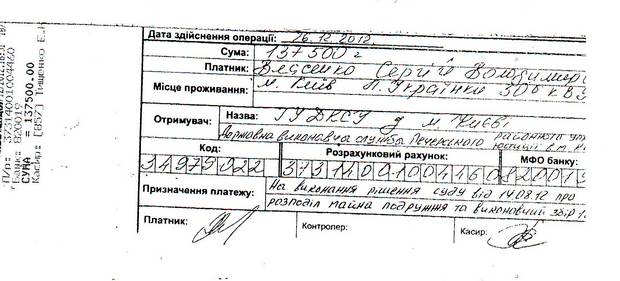 Дата здійснення операції: 26.12.2012.
Сума: 137500 г
Платник: Сергій Володимиро
Місце проживання: м. Київ Л. Українки 30б кв
Отримувач: Назва: ГУДКСУ у м Києві
Державна виконавча служба Печерського районного упр
юстиції в м. К
Код: Розрахунковий рахунок: МФО банку:
34979022 37314001004460 820019
Призначення платежу: На виконання рішення суду від 14.08.12 про
розподіл майна подружжя та виконавчий збір
Платник: Контролер: Касир:
П/р: 37314001004460
Банк: 820019
СУМА = 137500.00
Касир: [857] Тищенко Е.